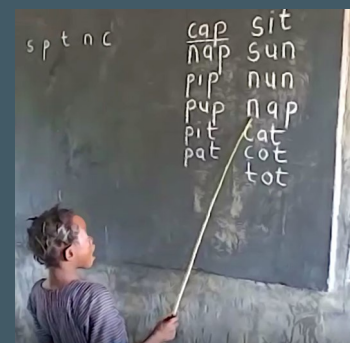 s p t n c
cap
nap
pip
pup
pit
pat
sit
sun
nun
nap
cat
cot
tot